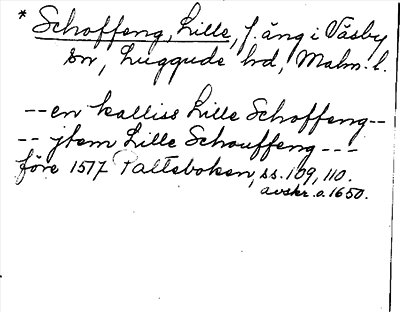 * Schoffeng, Lille, f. äng i Väsby
sn, Luggude hd, Malm. l.
-- en kalliss Lille Schoffeng --
-- jtem Lille Schouffeng ---
före 1517 Palteboken, ss. 109, 110.
avskr. o. 1650.